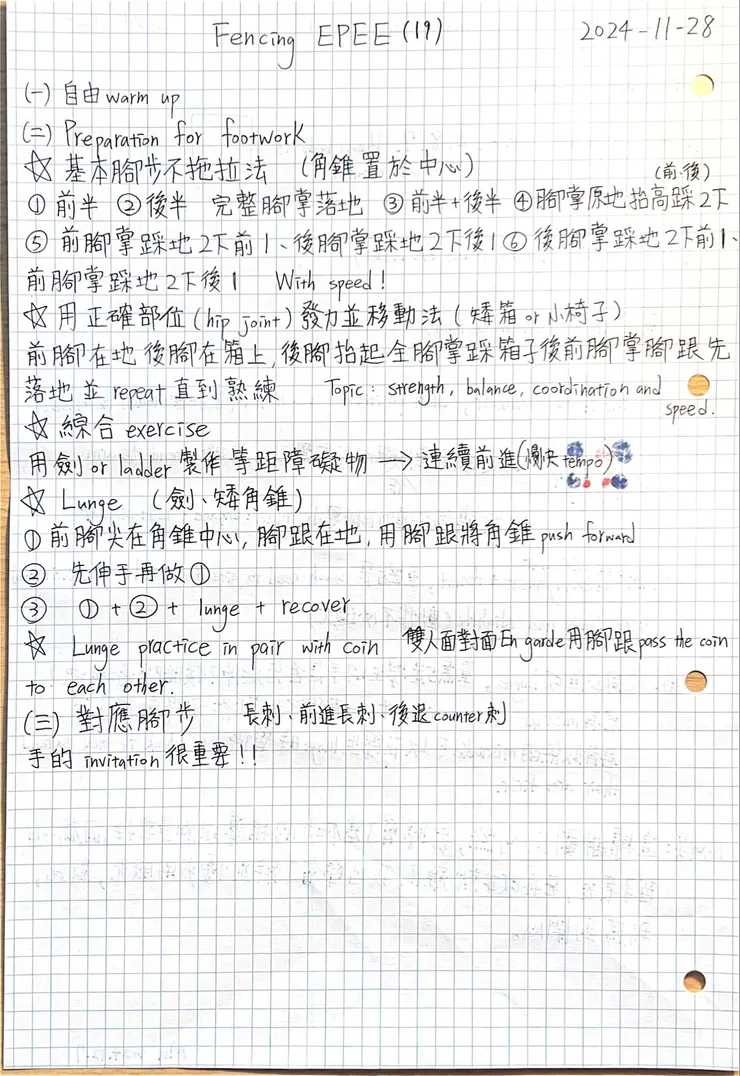 Fencing EPEE (19) 2024-11-28
(一) 自由 warm up
(二) Preparation for footwork
☆ 基本腳步不拖拉法 (角錐置於中心)
(前、後)
① 前半 ② 後半 完整腳掌落地 ③ 前半+後半 ④ 腳掌原地抬高踩2下
⑤ 前腳掌踩地2下前1、後腳掌踩地2下後1 ⑥ 後腳掌踩地2下前1、
前腳掌踩地2下後1 With speed!
☆ 用正確部位 (hip joint) 發力並移動法 (矮箱 or 小椅子)
前腳在地後腳在箱上,後腳抬起全腳掌踩箱子後前腳掌腳跟先
落地並 repeat 直到熟練 Topic: strength, balance, coordination and
speed.
☆ 綜合 exercise
用劍 or ladder 製作等距障礙物 → 連續前進 (慢快 tempo)
☆ Lunge (劍、矮角錐)
① 前腳尖在角錐中心, 腳跟在地, 用腳跟將角錐 push forward
② 先伸手再做①
③ ① + ② + lunge + recover
☆ Lunge practice in pair with coin 雙人面對面 En garde 用腳跟 pass the coin
to each other.
(三) 對應腳步 長刺、前進長刺、後退 counter 刺
手的 invitation 很重要!!